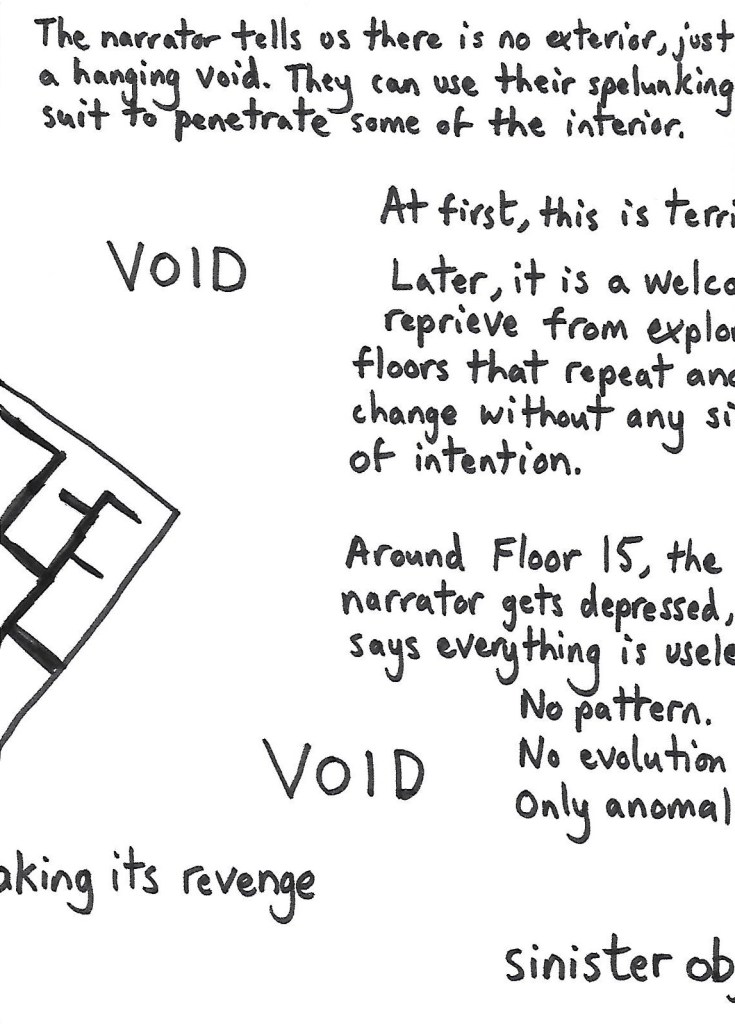 The narrator tells us there is no exterior, just
a hanging void. They can use their spelunking
suit to penetrate some of the interior.
At first, this is terri
VOID
Later, it is a welco
reprieve from explor
floors that repeat and
change without any si
of intention.
Around Floor 15, the
narrator gets depressed,
says everything is usele
No pattern.
No evolution
VOID
Only anomal
aking its revenge
sinister obj